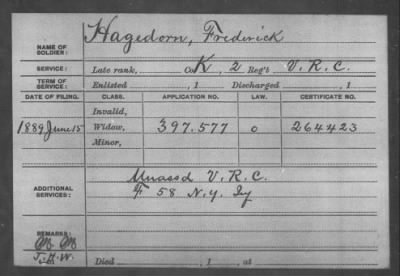 NAME OF SOLDIER: Hagedorn, Frederick
SERVICE: Late rank, Co. K, 2 Reg't V. R. C.
TERM OF SERVICE: Enlisted , 1 Discharged , 1
DATE OF FILING. CLASS. APPLICATION NO. LAW. CERTIFICATE NO.
Invalid,
1889 June 15 Widow, 397.577 o 264423
Minor,
ADDITIONAL SERVICES: Unassd V. R. C.
F 58 N.Y. Iy
REMARKS:
Died , 1 at